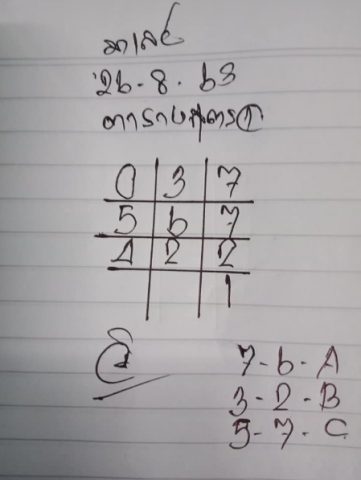 มาเลย์
26-8-63
ตารางสูตร ①
0 3 7
5 6 7
4 2 2
1
7-6-A
3-2-B
5-7-C